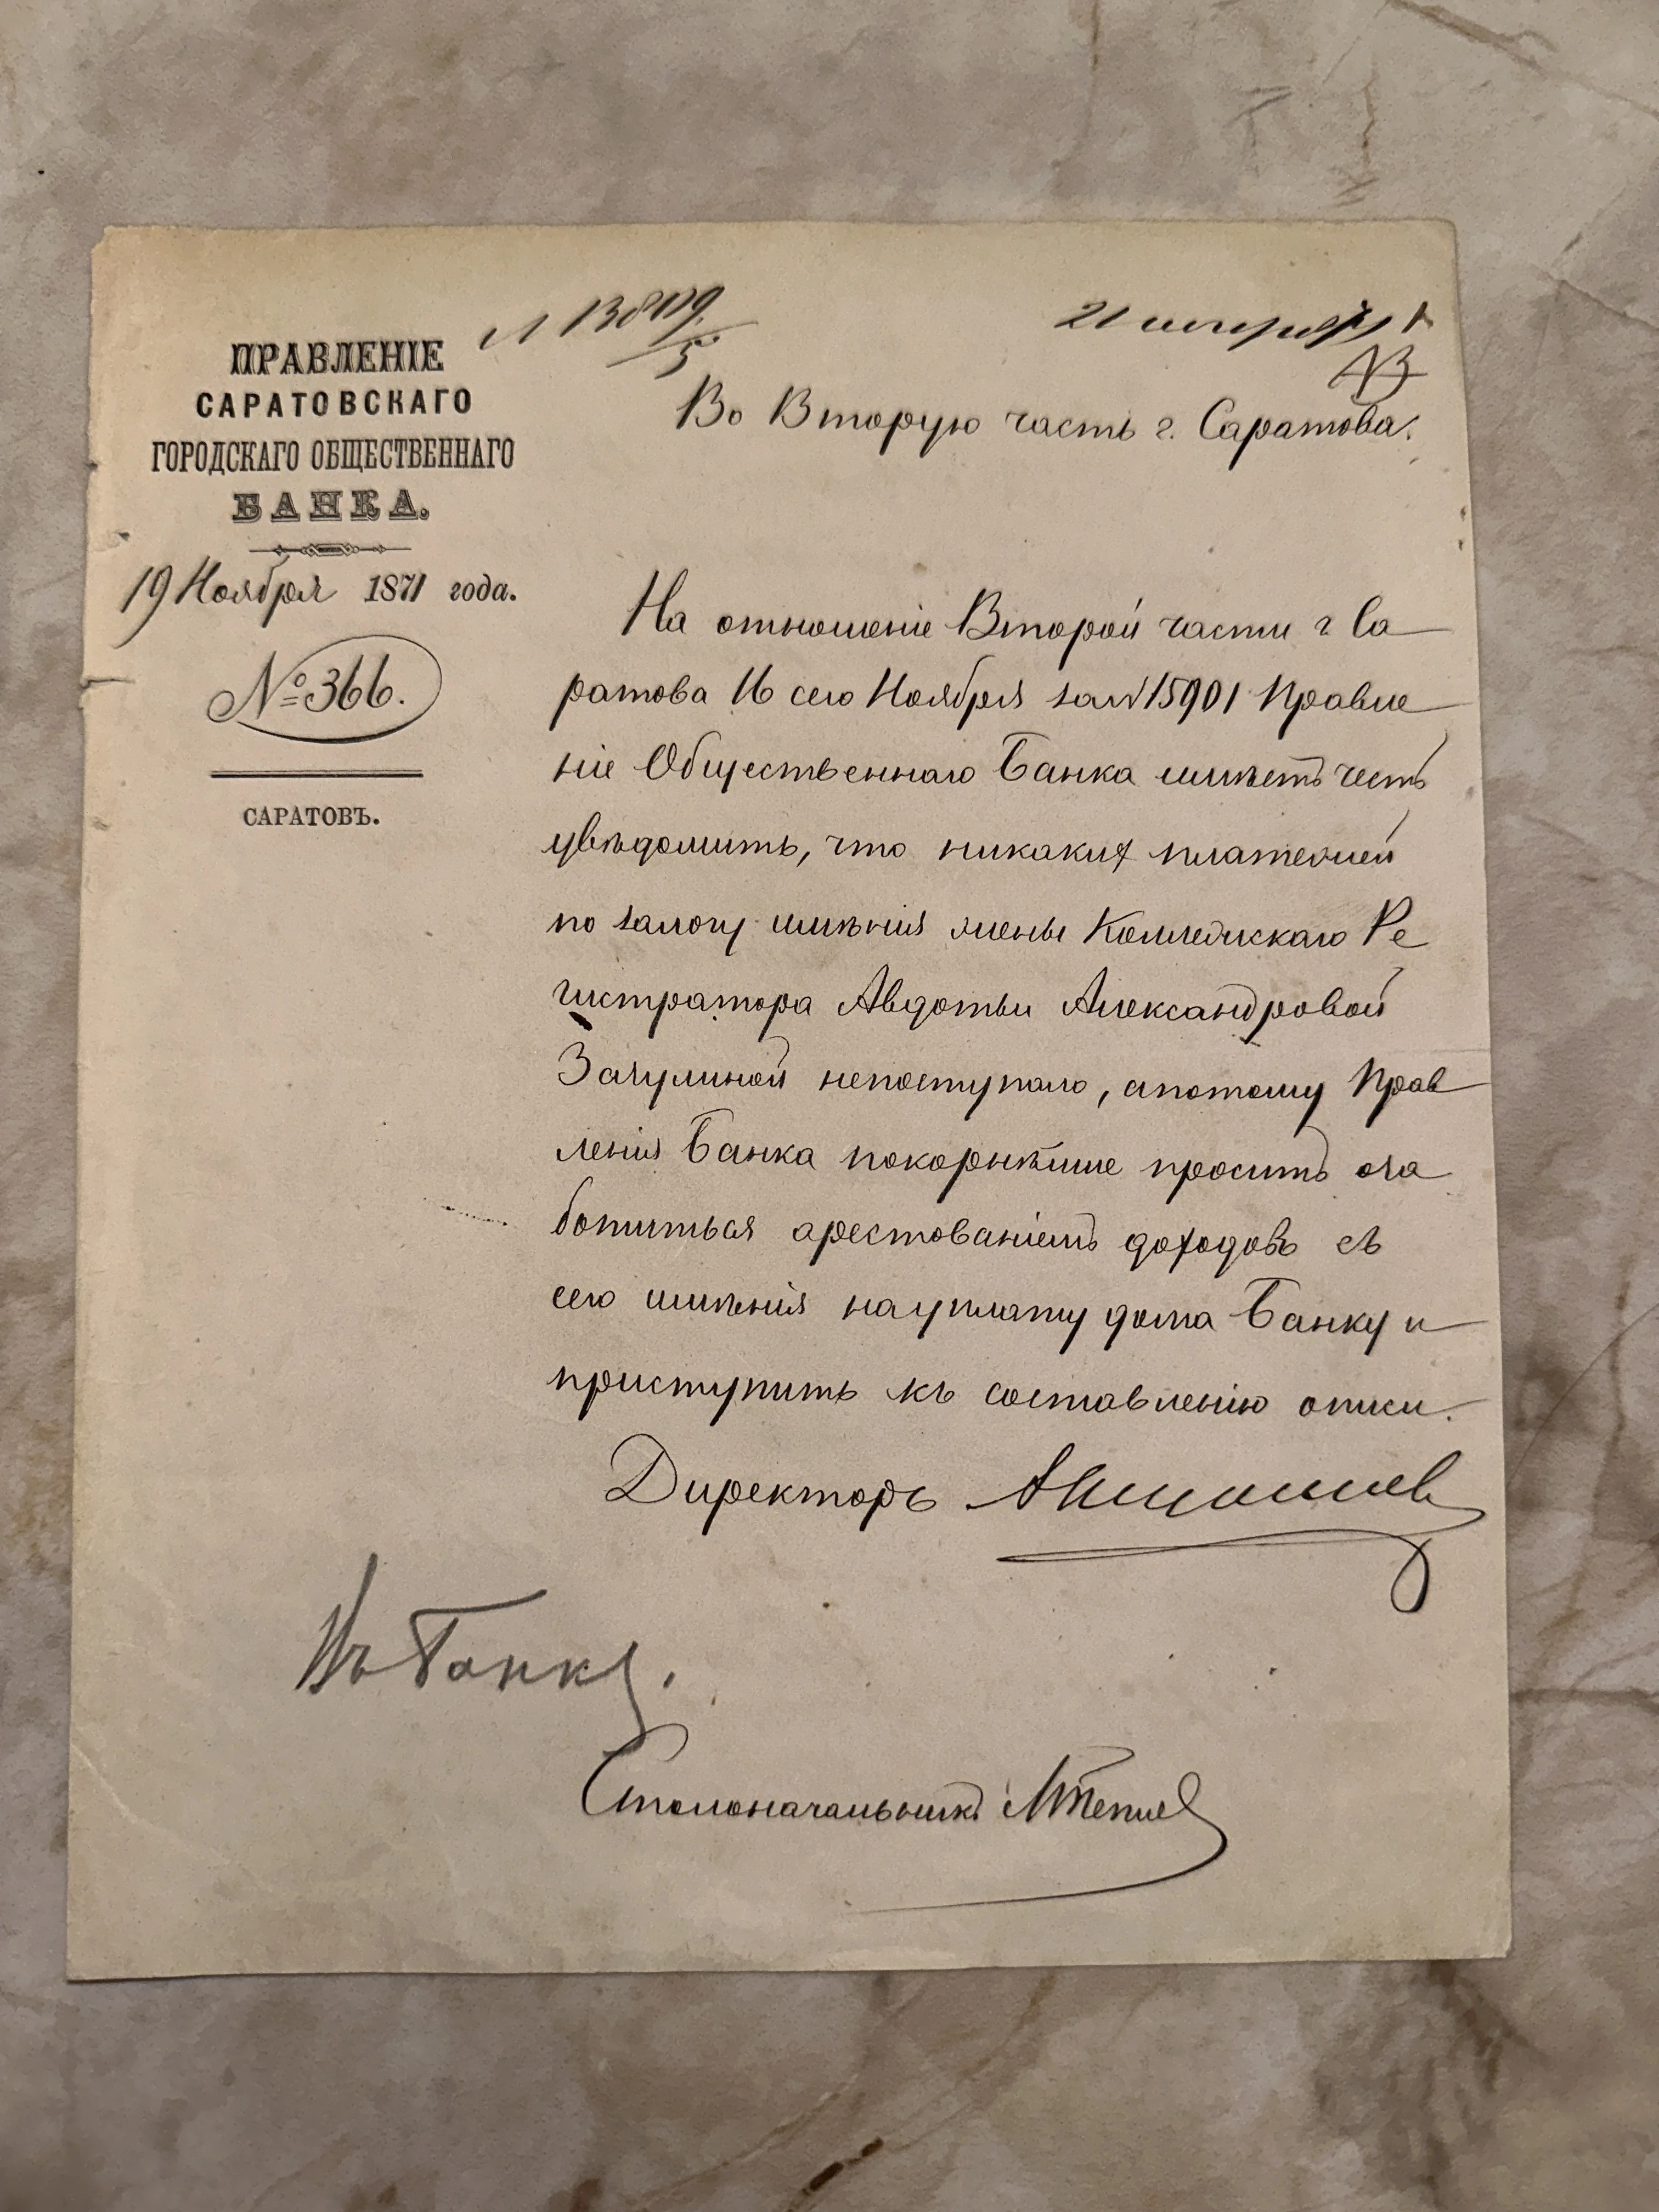 ПРАВЛЕНІЕ
САРАТОВСКАГО
ГОРОДСКАГО ОБЩЕСТВЕННАГО
БАНКА.
19 Ноября 1871 года.
№ 366.
САРАТОВЪ.
21
Во Вторую часть г. Саратова.
На отношеніе Второй части г Са
ратова 16 сего Ноября за № 15901 Правле
ніе Общественнаго Банка имѣетъ честь
увѣдомить, что никаких платежей
по залогу имѣнія жены Коллежскаго Ре
гистратора Авдотьи Александровой
непоступало, апотому Прав
ленія Банка покорнѣйше проситъ оза
ботиться арестованіемъ доходовъ съ
сего имѣнія науплату долга Банку и
приступить къ составленію описи.
Директоръ
Въ Банкъ.
Столоначальникъ